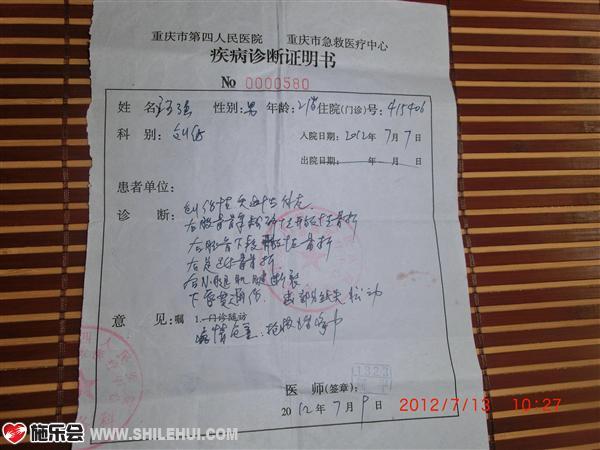 重庆市第四人民医院 重庆市急救医疗中心
疾病诊断证明书
No 0000580
姓 名: 性别:男 年龄:21岁 住院(门诊)号:415406
科 别:创伤 入院日期:2012年7月7日
出院日期: 年 月 日
患者单位:
诊 断:创伤性失血性休克
右股骨骨干粉碎性开放性骨折
右胫骨下段开放性骨折
右足 骨骨折
右小腿肌腱断裂
下唇贯通伤
意 见:嘱 1.门诊随访
病情危重.抢救
1323
医 师(签章):
2012年7月9日
2012/7/13 10:27
施乐会 WWW.SHILEHUI.COM